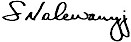 S Nalewanyj